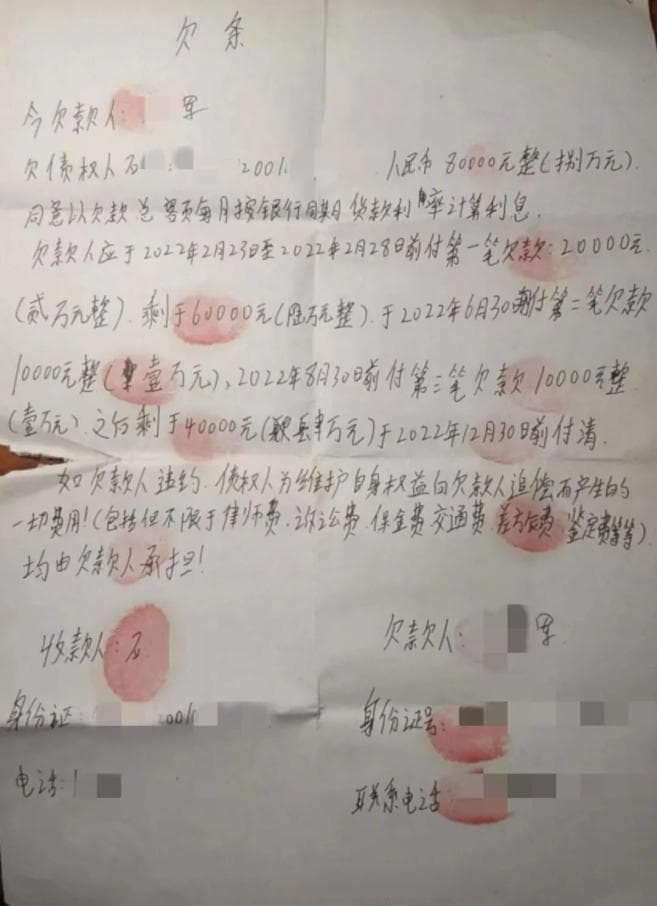 欠条
今欠款人: 军
欠债权人石 2001 人民币80000元整(捌万元).
同意以欠款总额每月按银行同期贷款利率计算利息.
欠款人应于2022年2月23日至2022年2月28日前付第一笔欠款:20000元
(贰万元整).剩于60000元(陆万元整).于2022年6月30前付第二笔欠款
10000元整(壹万元),2022年8月30日前付第三笔欠款10000元整
(壹万元).之后剩于40000元(肆万元)于2022年12月30日前付清.
如欠款人违约.债权人为维护自身权益向欠款人追偿而产生的
一切费用!(包括但不限于律师费.诉讼费.保全费.交通费.差旅费.鉴定费等等)
均由欠款人承担!
收款人:石 欠款人: 军
身份证: 2001 身份证号:
电话:1 联系电话: